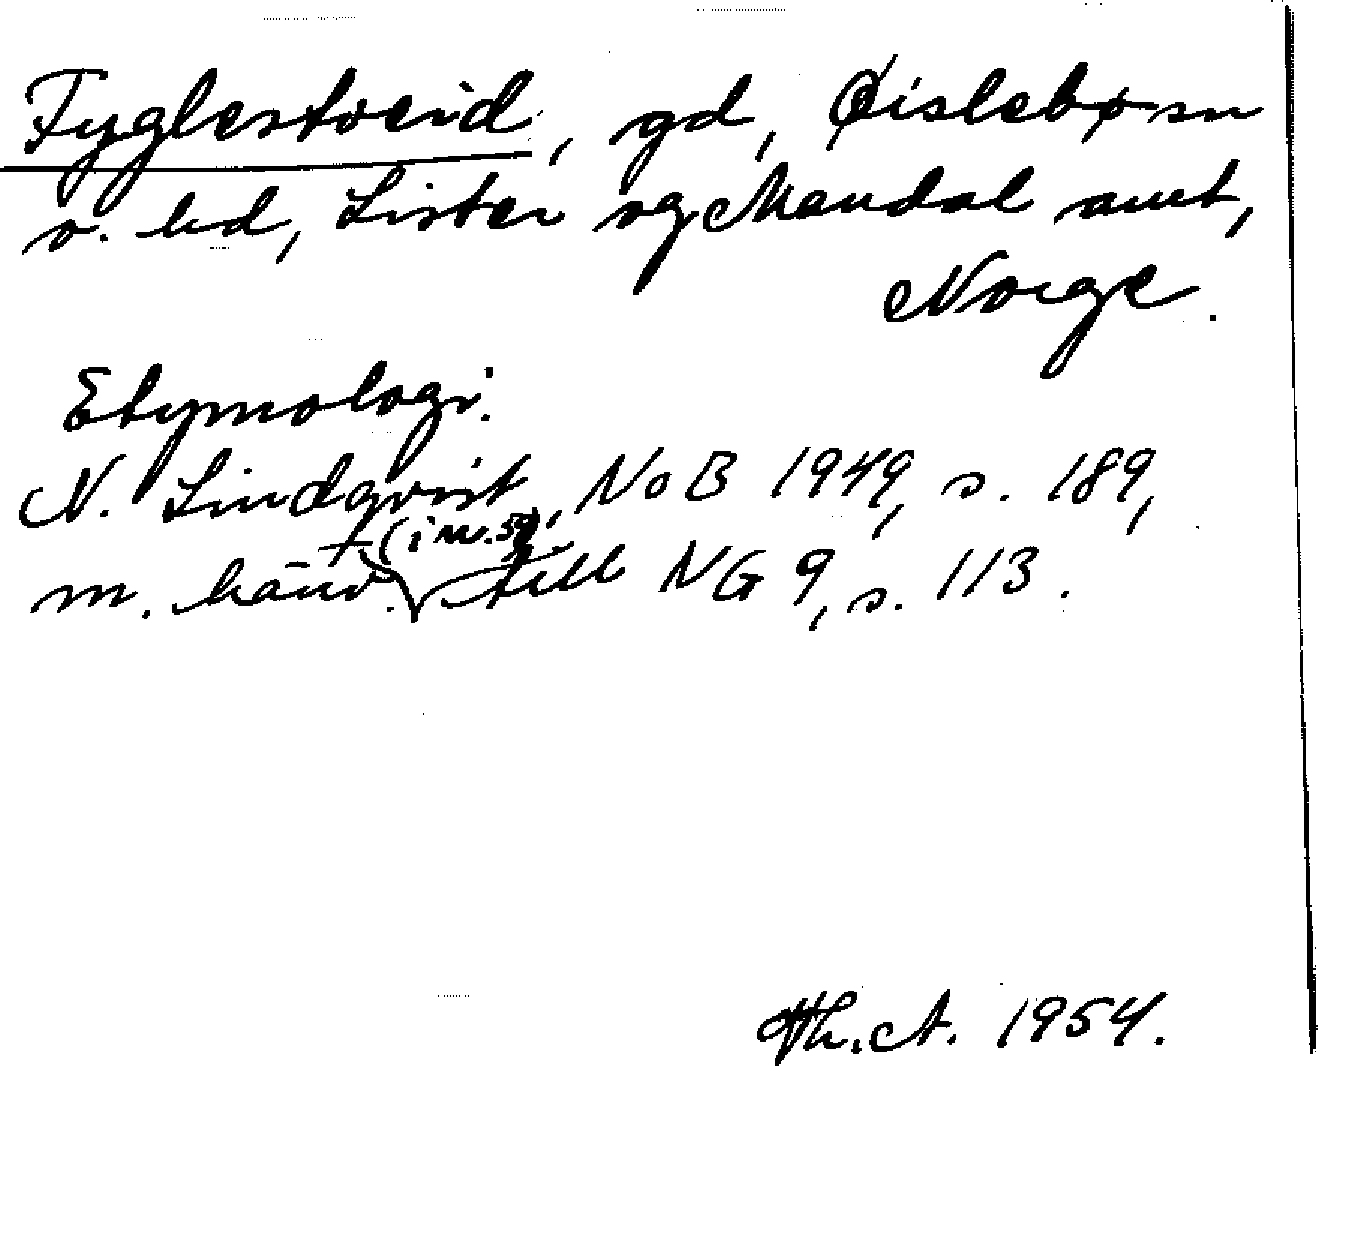 Fyglestveid, gd, Øislebø sn
o. hd, Lister og Mandal amt,
Norge.
Etymologi.
N. Lindqvist, NoB 1949, s. 189,
(i n. 59)
m. hänv. till NG 9, s. 113.
Th. A. 1954.